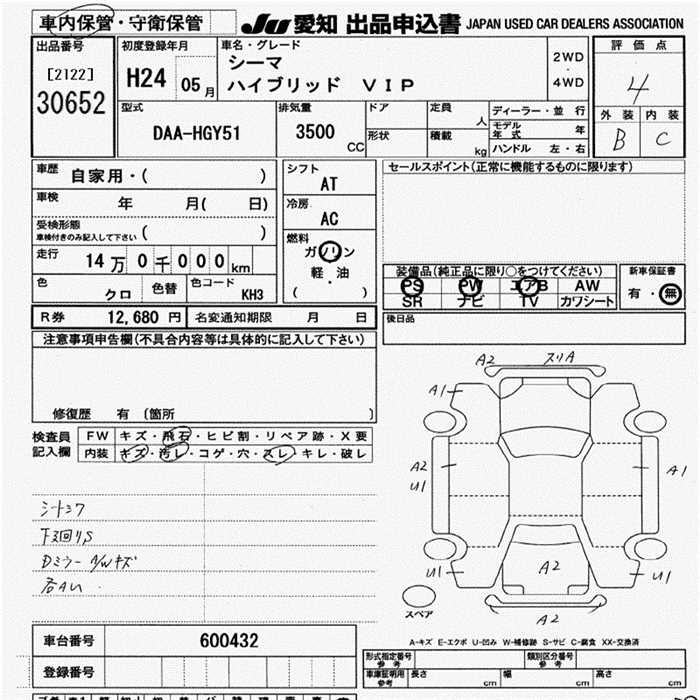 車内保管・守衛保管
JU 愛知 出品申込書 JAPAN USED CAR DEALERS ASSOCIATION
出品番号
[2122]
30652
初度登録年月
H24 05月
車名・グレード
シーマ
ハイブリッド VIP
2WD
・
4WD
評価点
4
外装 内装
B C
型式
DAA-HGY51
排気量
3500
CC
ドア
形状
定員
人
積載
kg
ディーラー・並 行
モデル年式 年
ハンドル 左・右
車歴 自家用・( )
車検 年 月( 日)
受検形態
車検付きのみ記入して下さい ( )
走行 14万0千000km
色 クロ 色替 色コード KH3
シフト
AT
冷房
AC
燃料
ガソリン
軽・油
( )
セールスポイント(正常に機能するものに限ります)
装備品(純正品に限り○をつけてください)
PS PW エアB AW
SR ナビ TV カワシート
新車保証書
有・無
R券 12,680円 名変通知期限 月 日
後日品
注意事項申告欄(不具合内容等は具体的に記入して下さい)
修復歴 有 〔箇所 〕
検査員
記入欄
FW キズ・飛石・ヒビ割・リペア跡・X要
内装 キズ・汚レ・コゲ・穴・スレ・キレ・破レ
下回りS
Dミラー A/Wキズ
各AU
A2 スリA
A1
A2
U1
A1
U1
A2
U1
スペア
A2
A-キズ E-エクボ U-凹み W-補修跡 S-サビ C-腐食 XX-交換済
車台番号 600432
登録番号
形式指定番号
参考
類別区分番号
参考
車庫証明用
参考
長さ cm 幅 cm 高さ cm